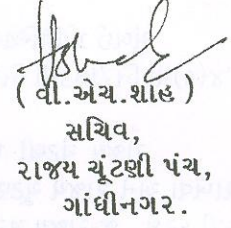 ( વી.એચ.શાહ )
સચિવ,
રાજય ચૂંટણી પંચ,
ગાંધીનગર.